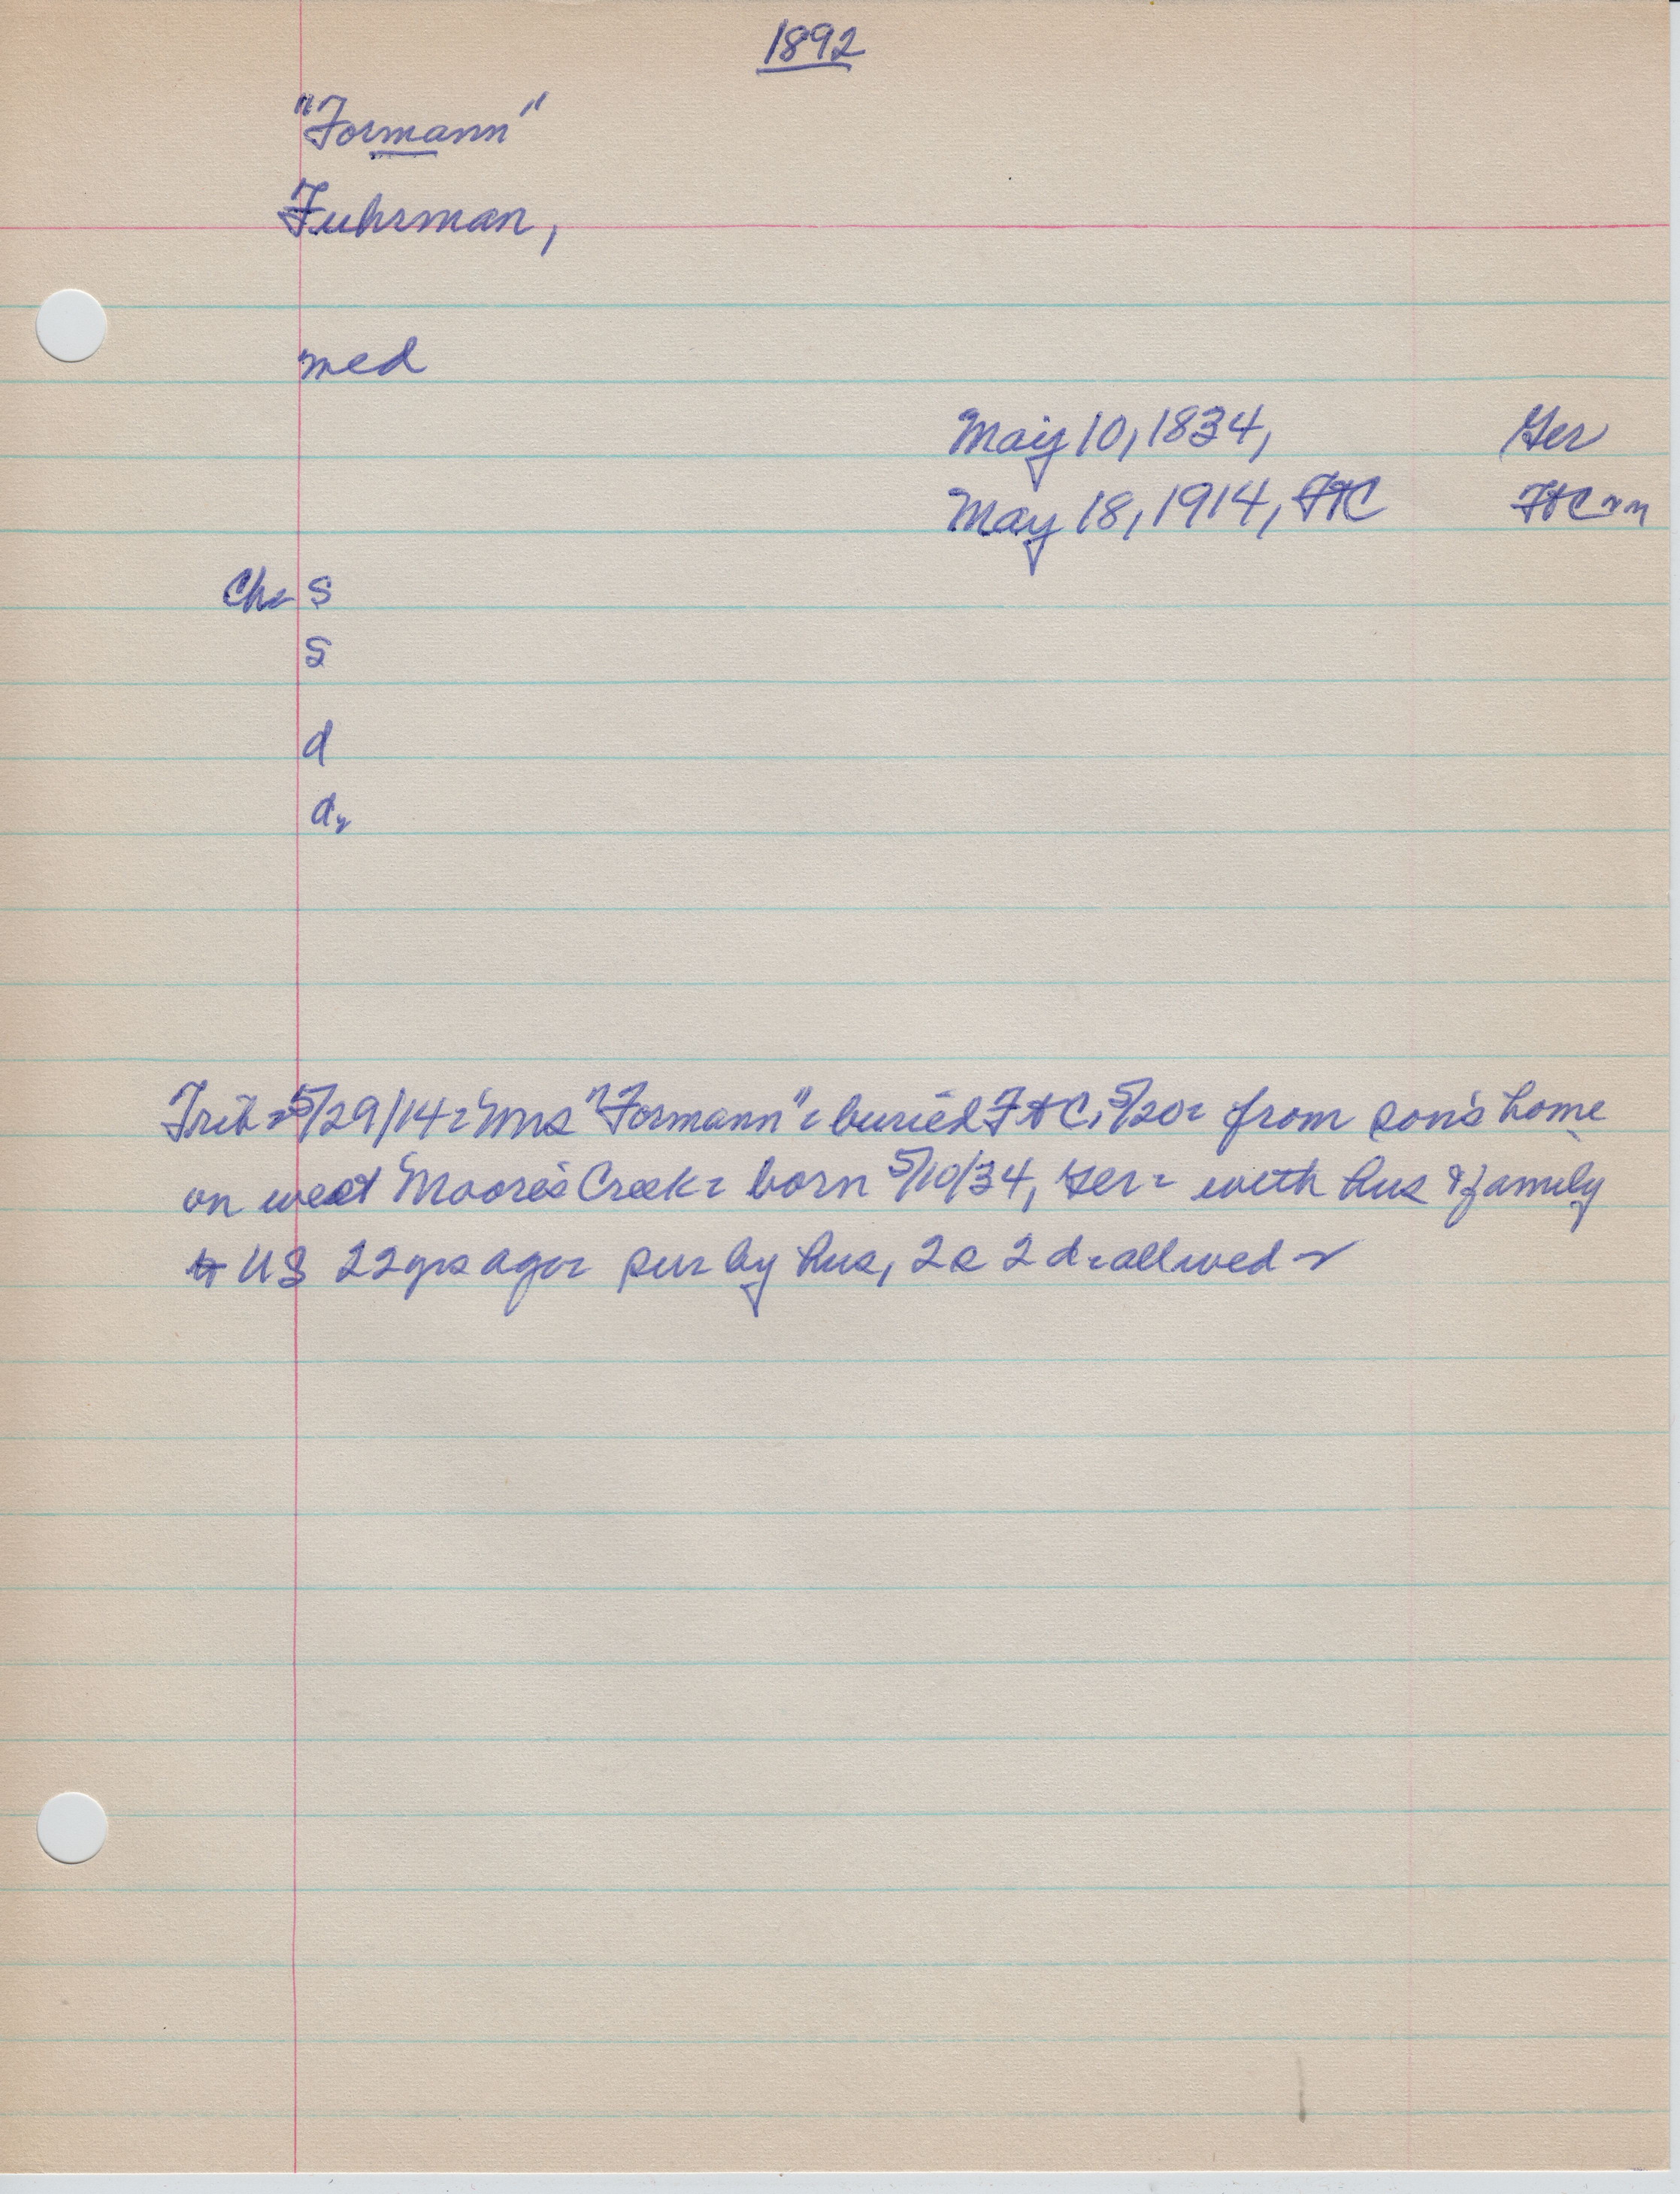 1892
"Formann"
Fuhrman,
med
May 10, 1834, Ger
May 18, 1914, FtC FtC
Ch- s
s
d
d,
Trib- 5/29/14- Mrs "Formann"- buried FtC, 5/20- from son's home
on west Moore's Creek- born 5/10/34, Ger- with hus & family
to US 22 yrs ago- sur by hus, 2s 2d-